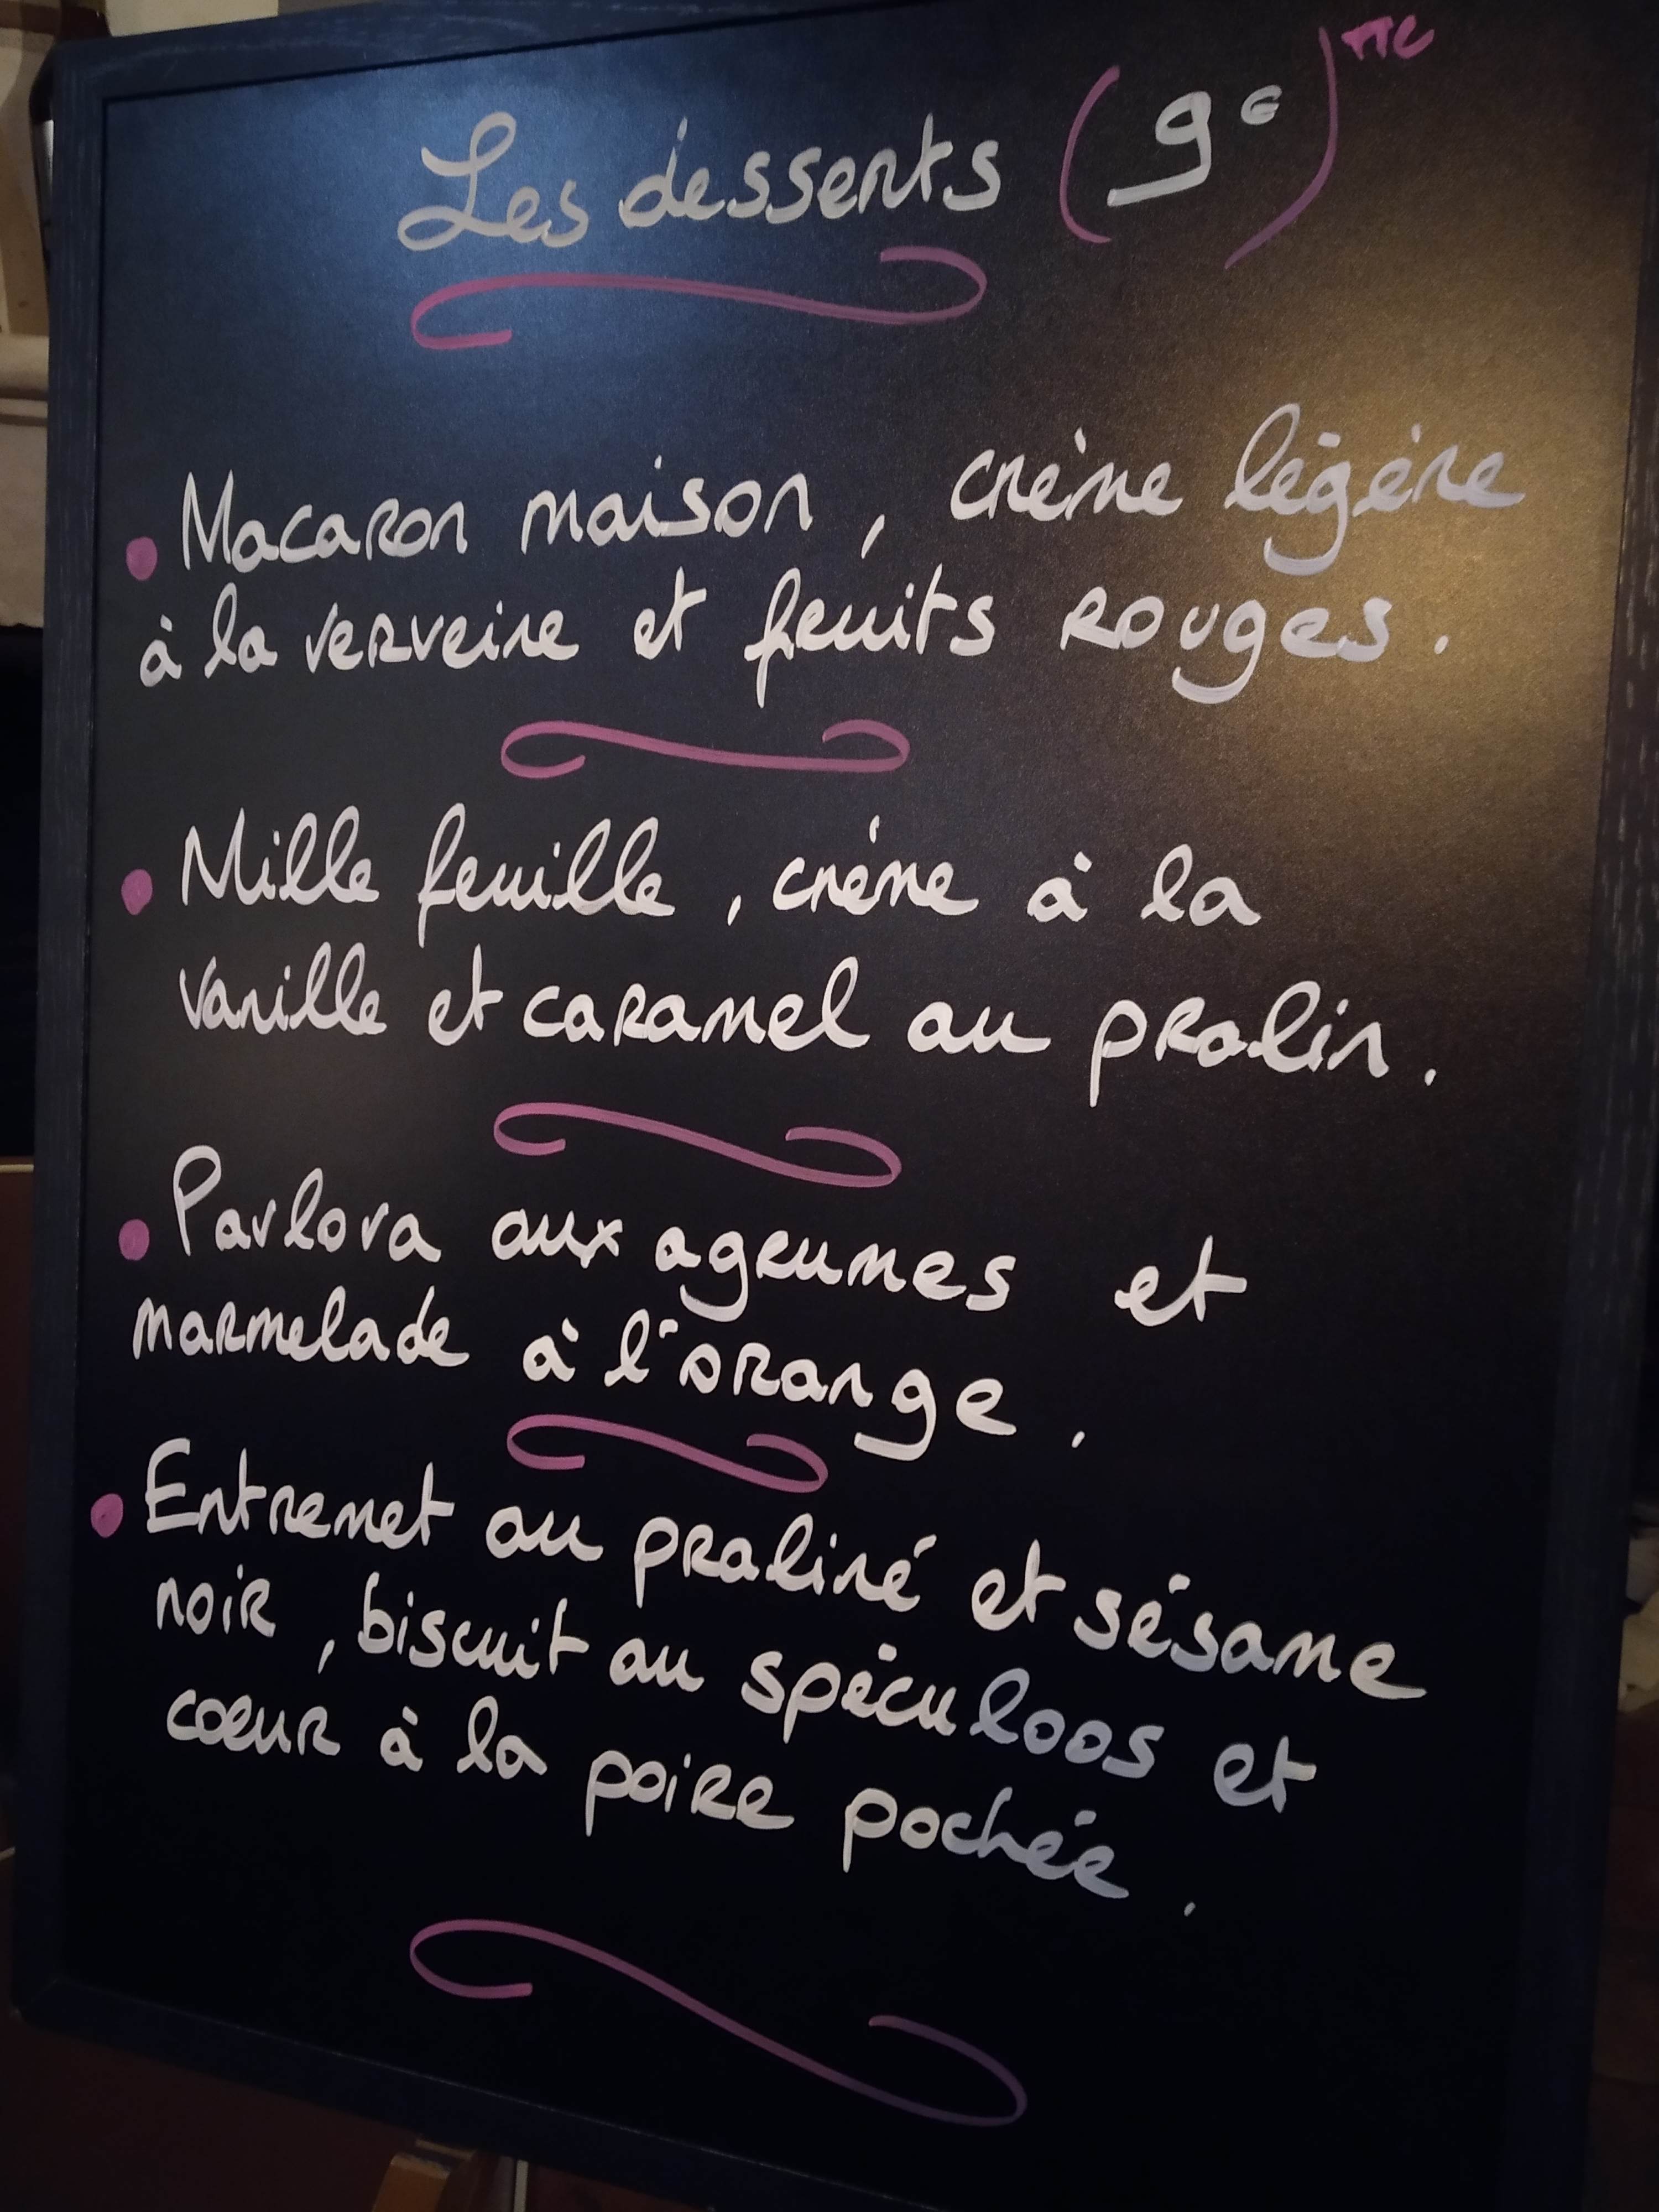 Les desserts (9€) TTC
• Macaron maison, crème légère
à la verveine et fruits rouges.
• Mille feuille, crème à la
vanille et caramel au pralin.
• Pavlova aux agrumes et
marmelade à l'orange.
• Entremet au praliné et sésame
noir, biscuit au spéculoos et
coeur à la poire pochée.